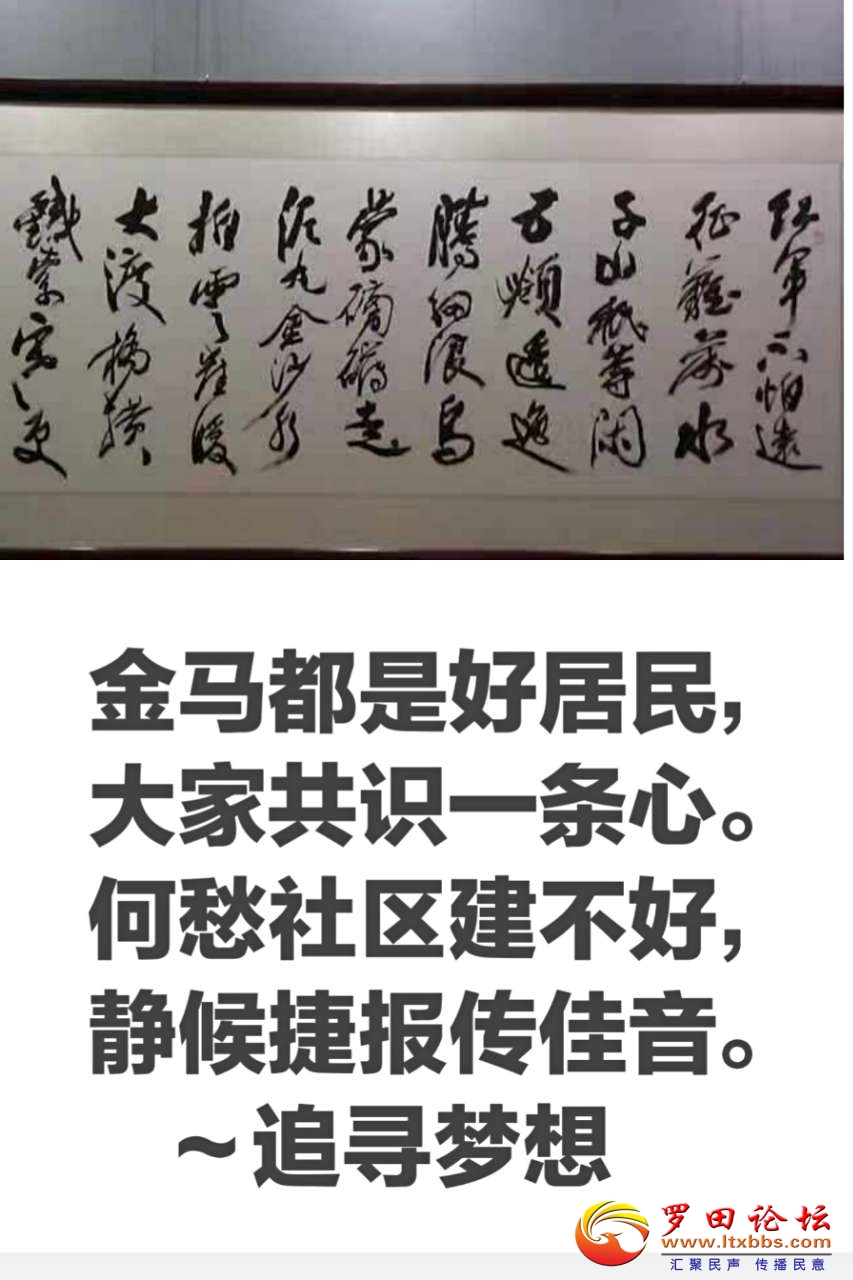 红軍不怕遠
征難萬水
千山祇等闲
五嶺逶迤
騰細浪烏
蒙磅礴走
泥丸金沙水
拍雲崖暖
大渡橋横
鐵索寒更
金马都是好居民，
大家共识一条心。
何愁社区建不好，
静候捷报传佳音。
~追寻梦想
罗田论坛
www.ltxbbs.com
汇聚民声 传播民意